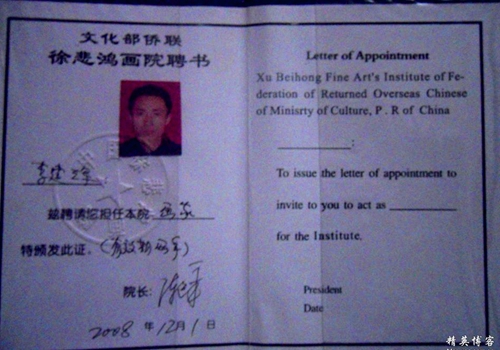 文化部侨联
徐悲鸿画院聘书
李
兹聘请您担任本院 画家
特颁发此证。(有效期两年)
院长:
2008 年 12 月 1 日
Letter of Appointment
Xu Beihong Fine Art's Institute of Fe-
deration of Returned Overseas Chinese
of Minisrty of Culture, P . R of China
:
To issue the letter of appointment to
invite to you to act as
for the Institute.
President
Date
精英博客